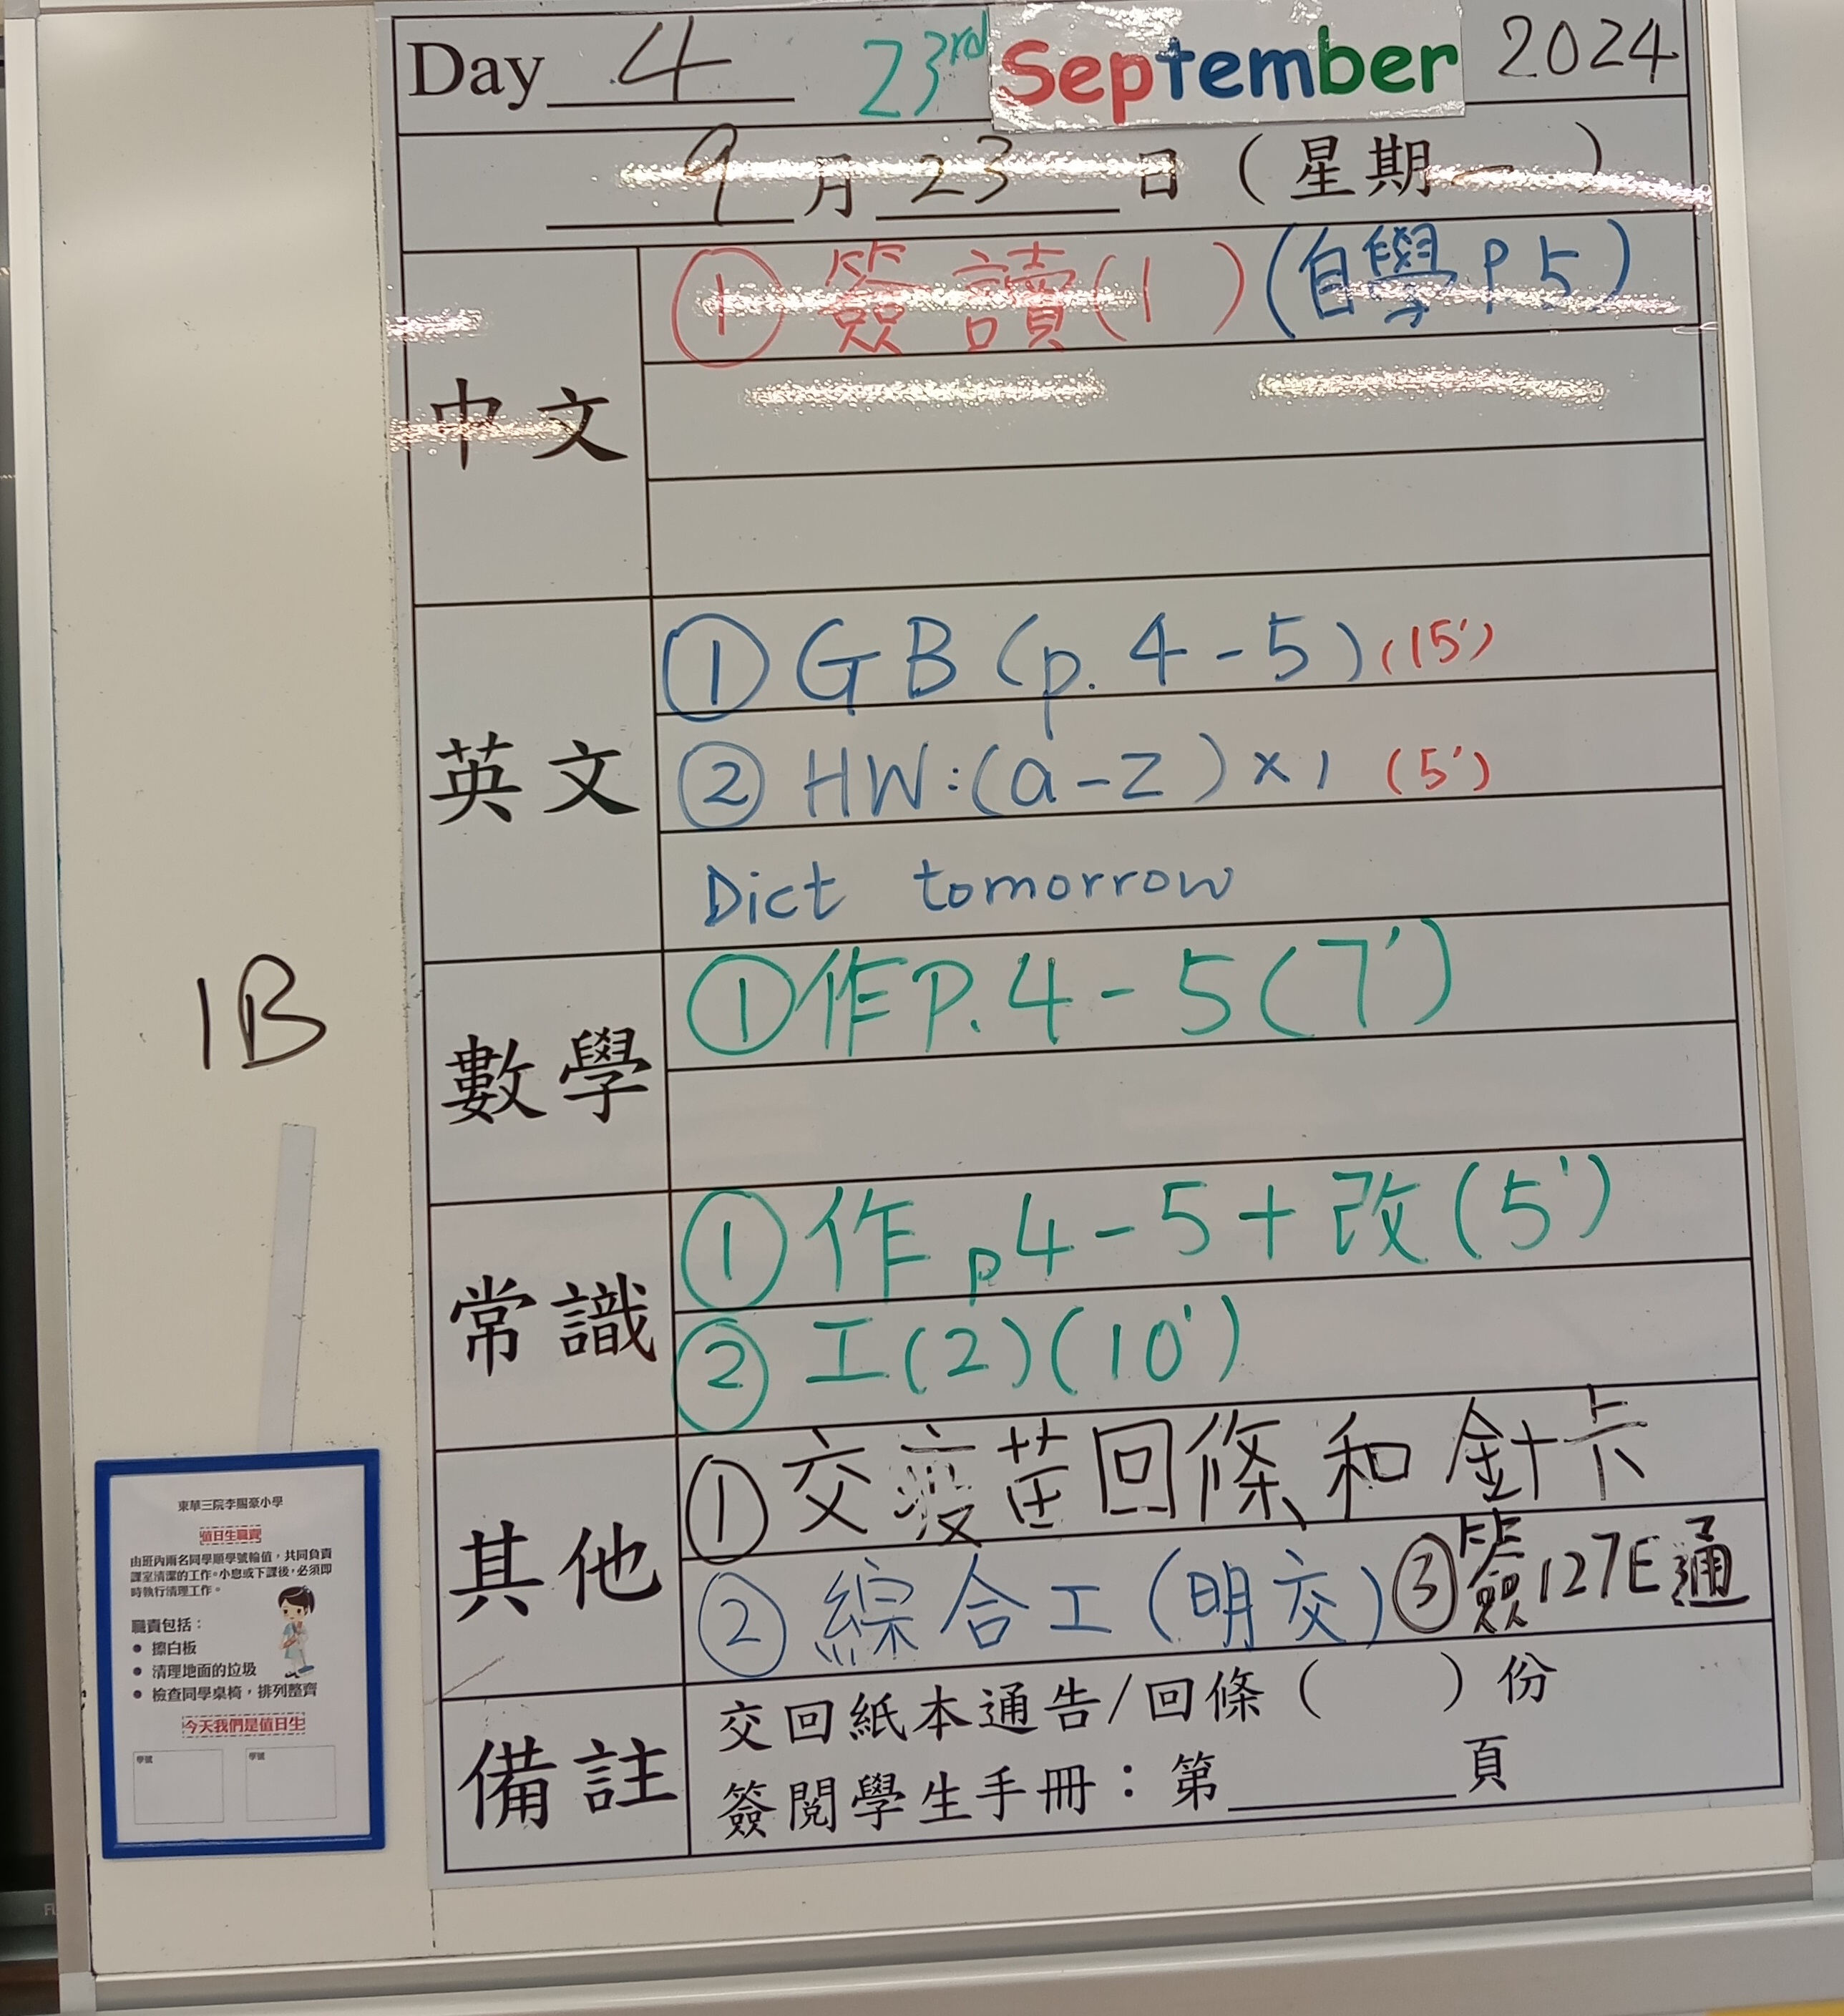 Day 4 23rd September 2024
9月23日(星期一)
中文
①簽讀(1 )(自學P.5)
英文
①GB(p.4-5)(15')
②HW:(a-z)×1 (5')
Dict tomorrow
數學
①作P.4-5(7')
常識
①作p4-5+改(5')
②工(2)(10')
其他
①交疫苗回條和針卡
②綜合工(明交)③簽127E通
備註
交回紙本通告/回條( )份
簽閱學生手冊:第______頁
1B
東華三院李賜豪小學
值日生職責
由班內兩名同學順學號輪值,共同負責
課室清潔的工作。小息或下課後,必須即
時執行清理工作。
職責包括:
• 擦白板
• 清理地面的垃圾
• 檢查同學桌椅,排列整齊
今天我們是值日生
學號 學號